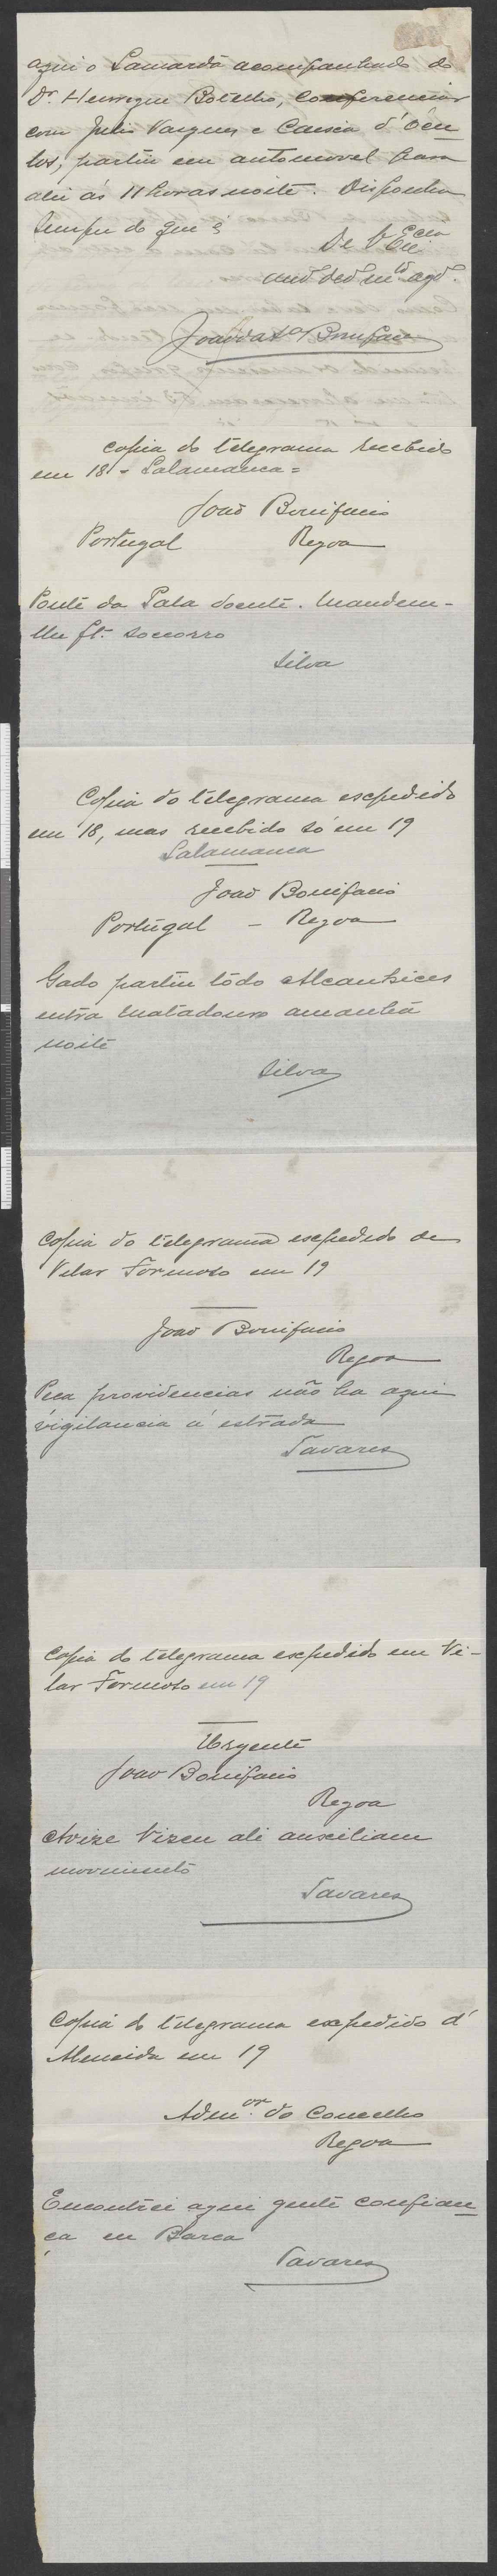 aqui o Lamardo acompanhado do
Dr. Henrique Botelho, conferenciar
com Julio Vasques e Cancio d'Ocu
los, partiu em automovel para
ali ás 11 horas noite. Disponha
sempre do que é
De V. Ex.cia
João da S.a Bonifacio
Copia do telegrama recebido
em 18 - Salamanca =
João Bonifacio
Portugal Regoa
Ponte da Pala doente. Mandem-
lhe soccorro
Silva
Copia do telegrama expedido
em 18, mas recebido só em 19
Salamanca
João Bonifacio
Portugal - Regoa
Gado partiu tôdo Alcanhices
entra matadouro amanhã
noite
Silva
Copia do telegrama expedido de
Vilar Formoso em 19
João Bonifacio
Regoa
Peça providencias não ha aqui
vigilancia á estrada
Tavares
Copia do telegrama expedido em Vi-
lar Formoso em 19
Urgente
João Bonifacio
Regoa
Avize Vizeu ali auxiliam
movimento
Tavares
Copia do telegrama expedido d'
Almeida em 19
Adm.or do Concelho
Regoa
Encontrei aqui gente confian
ça em Barca
Tavares